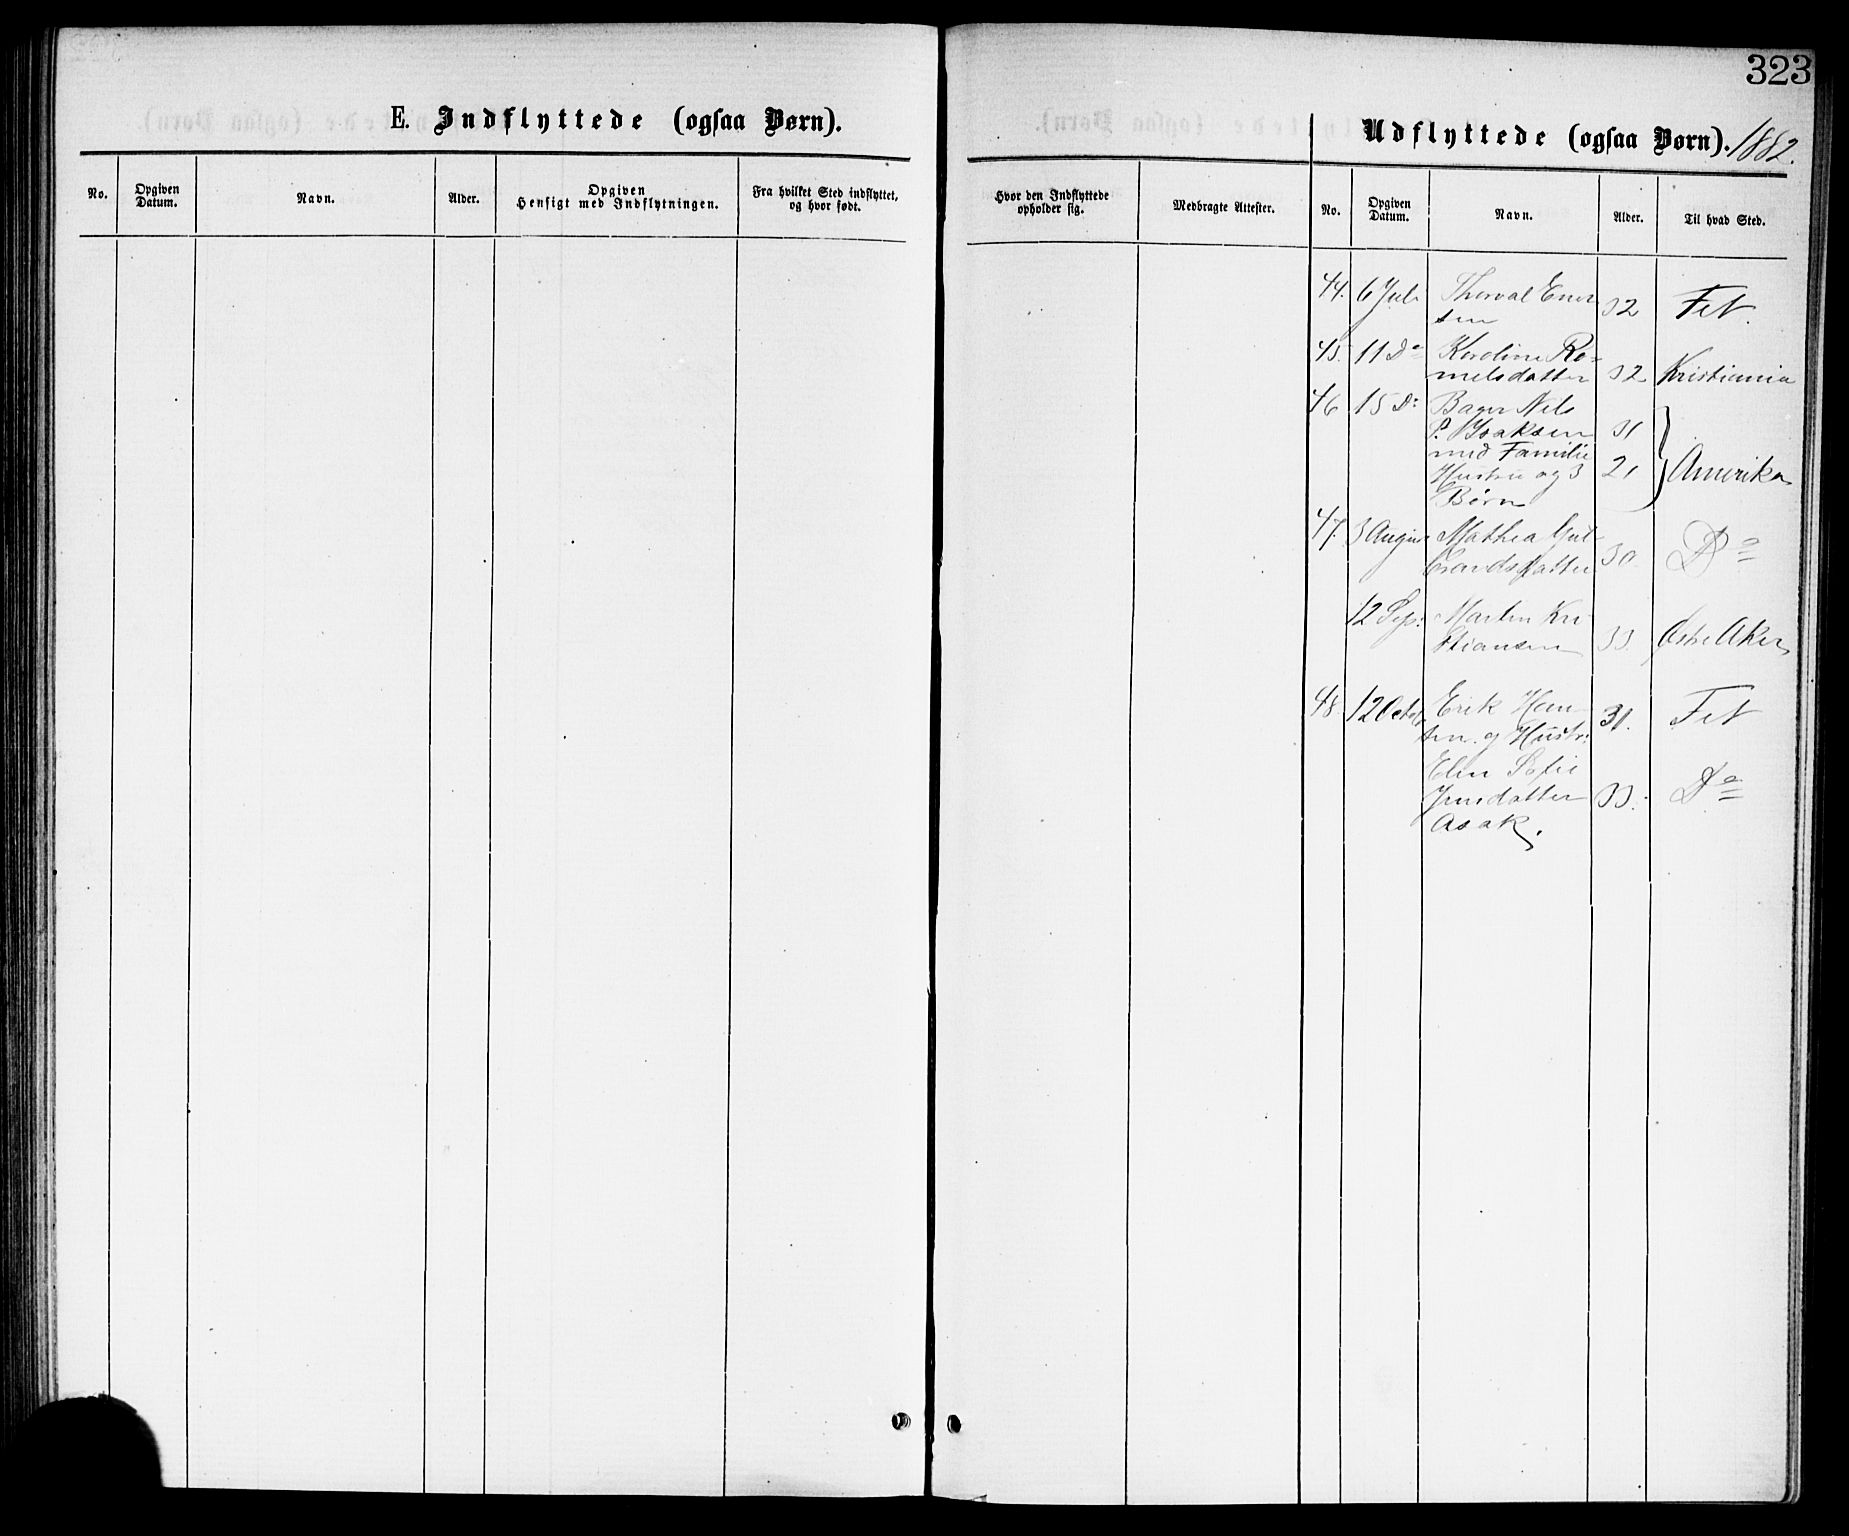 323
E. Indflyttede (ogsaa Børn).
Udflyttede (ogsaa Børn). 1882.
No.
Opgiven Datum.
Navn.
Alder.
Opgiven Hensigt med Indflytningen.
Fra hvilket Sted indflyttet, og hvor født.
Hvor den Indflyttede opholder sig.
Medbragte Attester.
No.
Opgiven Datum.
Navn.
Alder.
Til hvad Sted.
44. 6 Juli Thorval Ener
sen 32 Fet.
45. 11 Do Karoline Ro-
melsdatter 32 Kristiania
46 15 D: Bager Nils
P. Isaksen 31
med Familie
Hustru og 3 21 Amerika
Børn
47. 3 August Mathea Gul
brandsdatter 30. Do
12 Sep: Martin Kri
stiansen 33. Østre Aker
48 12 Octob Erik Han
sen og Hustr: 31. Fet
Elen Sofie
Jensdatter 33. Do
Asak.